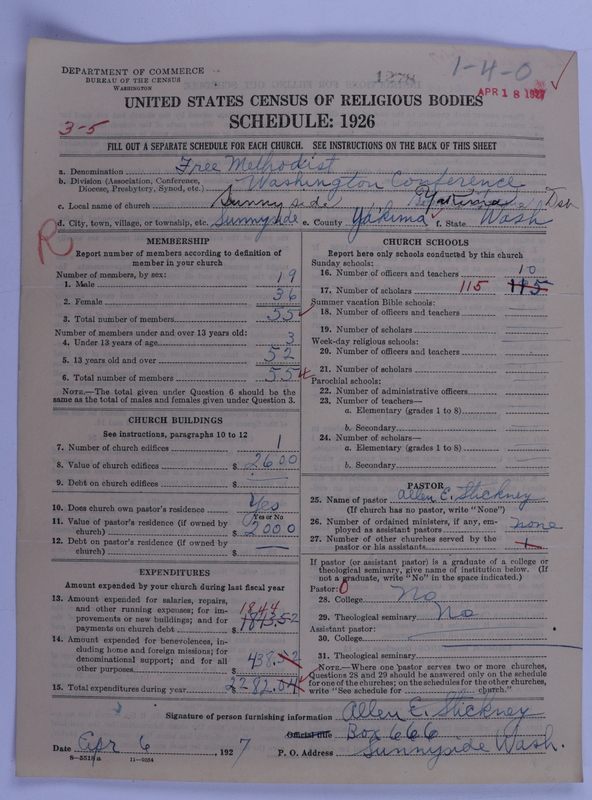 DEPARTMENT OF COMMERCE
BUREAU OF THE CENSUS
WASHINGTON
1278
1-4-0
APR 18 1927
UNITED STATES CENSUS OF RELIGIOUS BODIES
SCHEDULE: 1926
3-5
FILL OUT A SEPARATE SCHEDULE FOR EACH CHURCH. SEE INSTRUCTIONS ON THE BACK OF THIS SHEET
a. Denomination Free Methodist
b. Division (Association, Conference, Diocese, Presbytery, Synod, etc.) Washington Conference
c. Local name of church Sunnyside Yakima Dist
d. City, town, village, or township, etc. Sunnyside e. County Yakima f. State Wash
R
MEMBERSHIP
Report number of members according to definition of member in your church
Number of members, by sex:
1. Male 19
2. Female 36
3. Total number of members 55
Number of members under and over 13 years old:
4. Under 13 years of age 3
5. 13 years old and over 52
6. Total number of members 55
NOTE.—The total given under Question 6 should be the same as the total of males and females given under Question 3.
CHURCH BUILDINGS
See instructions, paragraphs 10 to 12
7. Number of church edifices 1
8. Value of church edifices $ 2600
9. Debt on church edifices $ —
10. Does church own pastor's residence Yes
(Yes or No)
11. Value of pastor's residence (if owned by church) $ 2000
12. Debt on pastor's residence (if owned by church) $ —
EXPENDITURES
Amount expended by your church during last fiscal year
13. Amount expended for salaries, repairs, and other running expenses; for improvements or new buildings; and for payments on church debt $ 1844 1843.52
14. Amount expended for benevolences, including home and foreign missions; for denominational support; and for all other purposes 438.52
15. Total expenditures during year $ 2282.04
CHURCH SCHOOLS
Report here only schools conducted by this church
Sunday schools:
16. Number of officers and teachers 10
17. Number of scholars 115 115
Summer vacation Bible schools:
18. Number of officers and teachers
19. Number of scholars
Week-day religious schools:
20. Number of officers and teachers
21. Number of scholars
Parochial schools:
22. Number of administrative officers
23. Number of teachers—
a. Elementary (grades 1 to 8)
b. Secondary
24. Number of scholars—
a. Elementary (grades 1 to 8)
b. Secondary
PASTOR
25. Name of pastor Allen E. Stickney
(If church has no pastor, write "None")
26. Number of ordained ministers, if any, employed as assistant pastors none
27. Number of other churches served by the pastor or his assistants 1
If pastor (or assistant pastor) is a graduate of a college or theological seminary, give name of institution below. (If not a graduate, write "No" in the space indicated.)
Pastor: 0
28. College No
29. Theological seminary No
Assistant pastor:
30. College
31. Theological seminary
NOTE.—Where one pastor serves two or more churches, Questions 28 and 29 should be answered only on the schedule for one of the churches; on the schedules for the other churches, write "See schedule for ________ church."
Signature of person furnishing information Allen E. Stickney
Official title Box 666
Date Apr 6, 1927 P. O. Address Sunnyside Wash.
8-5518a 11-9034